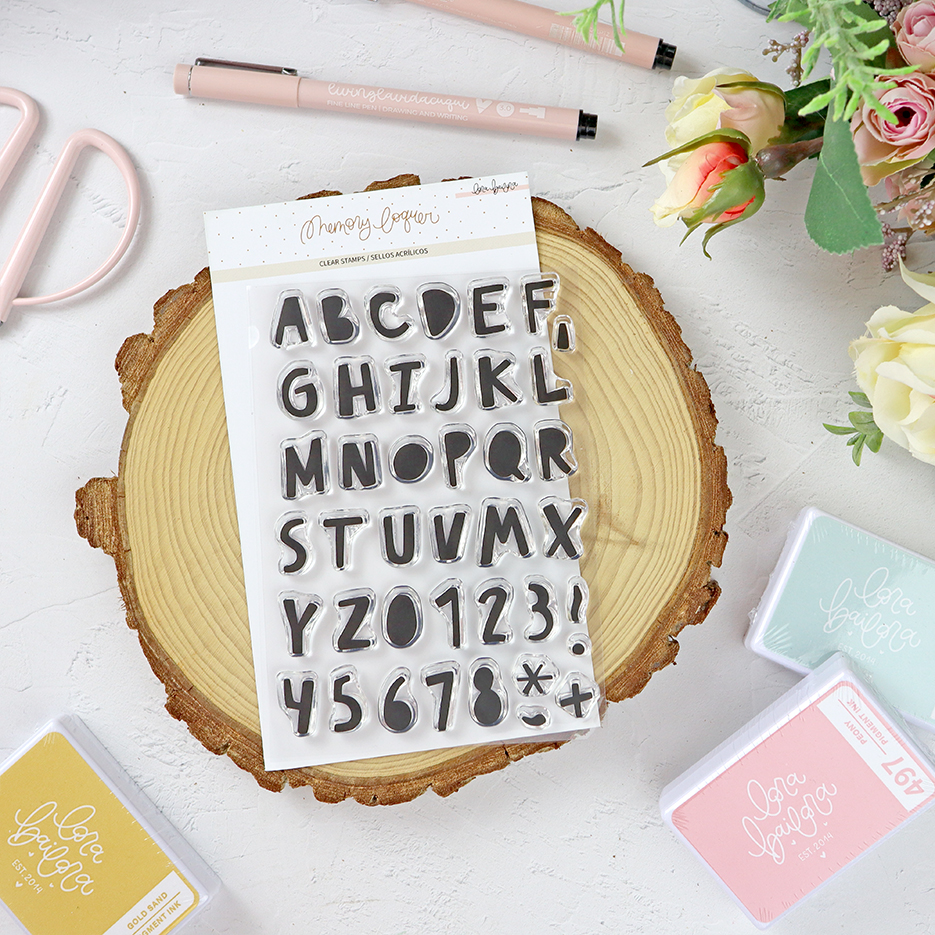 livinglavidacuqui
FINE LINE PEN | DRAWING AND WRITING
lora bailora
Memory loquer
CLEAR STAMPS / SELLOS ACRÍLICOS
A B C D E F
G H I J K L
M N O P Q R
S T U V W X
Y Z 0 1 2 3 !
4 5 6 7 8 * +
lora
bailora
EST. 2014
PEONY
PIGMENT INK
497
lora
bailora
EST. 2014
lora
bailora
EST. 2014
GOLD SAND
PIGMENT INK